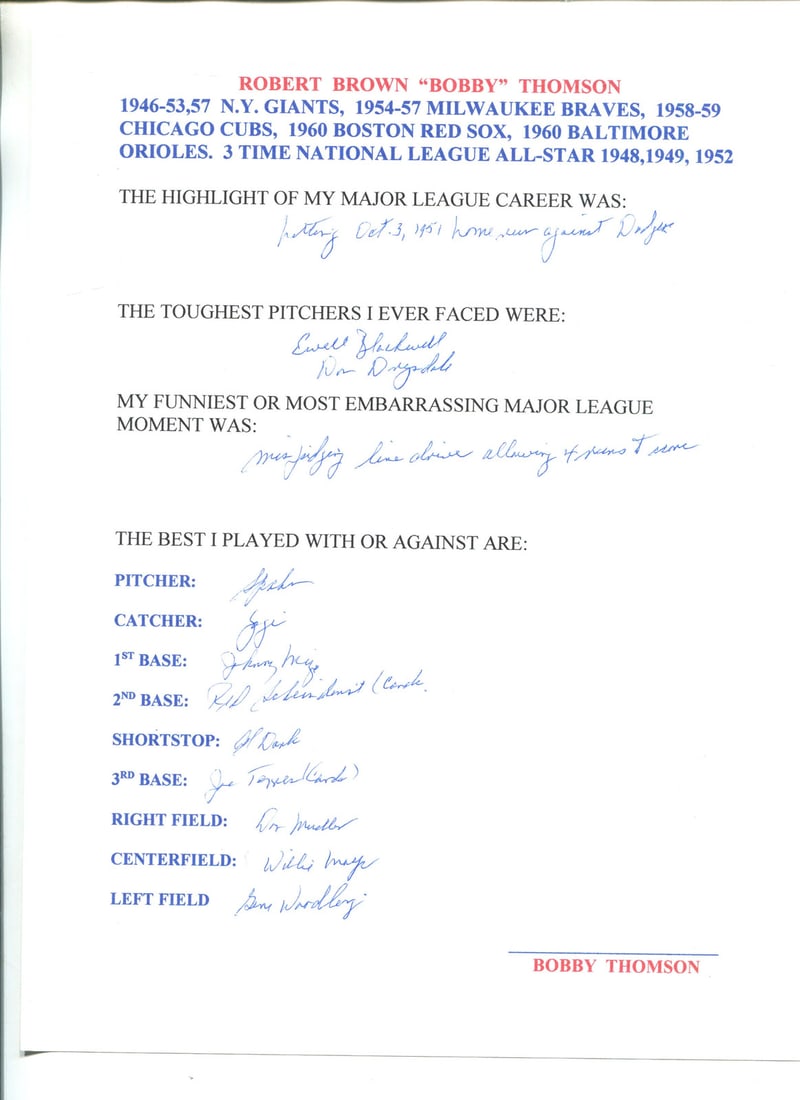 ROBERT BROWN “BOBBY” THOMSON
1946-53,57 N.Y. GIANTS, 1954-57 MILWAUKEE BRAVES, 1958-59
CHICAGO CUBS, 1960 BOSTON RED SOX, 1960 BALTIMORE
ORIOLES. 3 TIME NATIONAL LEAGUE ALL-STAR 1948,1949, 1952
THE HIGHLIGHT OF MY MAJOR LEAGUE CAREER WAS:
hitting Oct. 3, 1951 home run against Dodgers
THE TOUGHEST PITCHERS I EVER FACED WERE:
Ewell Blackwell
Don Drysdale
MY FUNNIEST OR MOST EMBARRASSING MAJOR LEAGUE
MOMENT WAS:
misjudging line drive allowing 4 runs to score
THE BEST I PLAYED WITH OR AGAINST ARE:
PITCHER: Spahn
CATCHER: Yogi
1ST BASE: Johnny Mize
2ND BASE: Red (Cards.
SHORTSTOP: Al Dark
3RD BASE: Joe Torre (Cards)
RIGHT FIELD: Don Mueller
CENTERFIELD: Willie Mays
LEFT FIELD Gene Woodling
BOBBY THOMSON